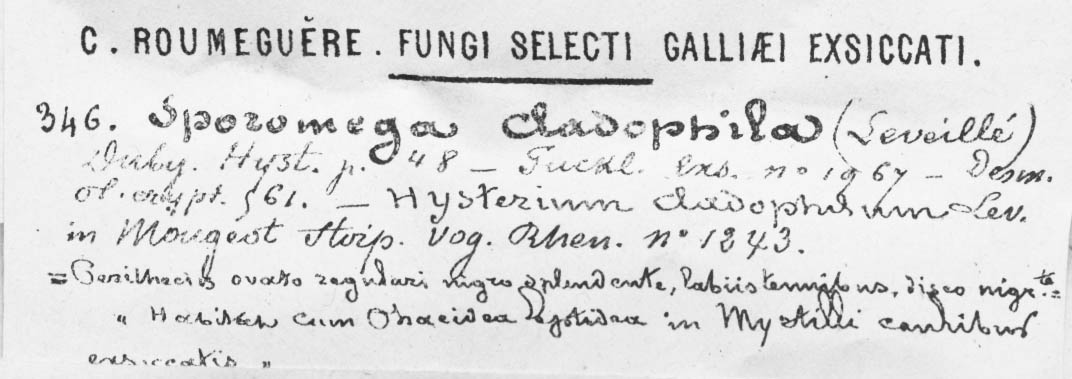 C. ROUMEGUÈRE. FUNGI SELECTI GALLIÆI EXSICCATI.
346. Sporomega cladophila (Leveillé)
Duby. Hyst. p. 48 — Fuckl. exs. no 1967 — Desm.
pl. crypt. 561. — Hysterium cladophilum Lev.
in Mougeot Stirp. Vog. Rhen. no 1243.
= Peritheciis ovato regulari nigro splendente, labiis tenuibus, disco nigr.te=
" Habitat cum in Myrtilli
exsiccatis "